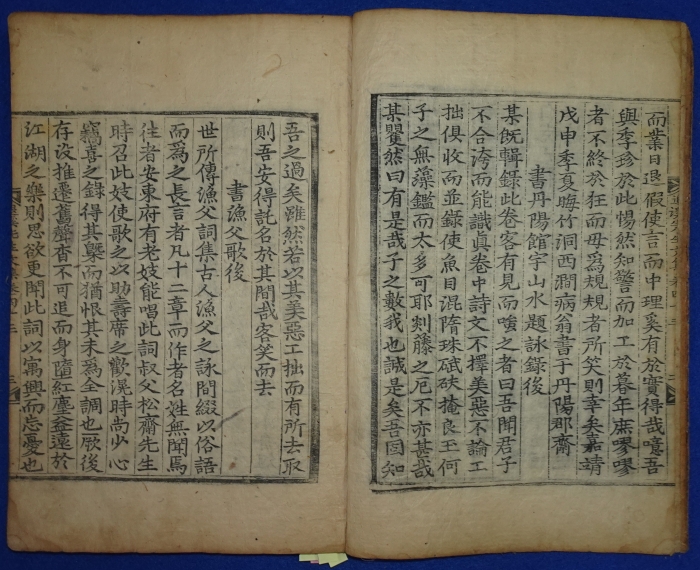 而業日退假使言而中理奚有於實得哉噫吾
與季珍於此惕然知警而加工於暮年庶嘐嘐
者不終於狂而毋爲規規者所笑則幸矣嘉靖
戊申季夏晦竹洞西澗病翁書于丹陽郡齋
書丹陽館宇山水題詠錄後
某旣輯錄此卷客有見而嗤之者曰吾聞君子
不合汚而能識眞卷中詩文不擇美惡不論工
拙俱收而並錄使魚目混隋珠碔砆掩良玉何
子之無藻鑑而太多可耶剡藤之厄不亦甚哉
某瞿然曰有是哉子之數我也誠是矣吾固知
吾之過矣雖然若以其美惡工拙而有所去取
則吾安得託名於其間哉客笑而去
書漁父歌後
世所傳漁父詞集古人漁父之詠間綴以俗語
而爲之長言者凡十二章而作者名姓無聞焉
往者安東府有老妓能唱此詞叔父松齋先生
時召此妓使歌之以助壽席之歡滉時尚少心
竊喜之錄得其槩而猶恨其未爲全調也厥後
存沒推遷舊聲杳不可追而身隨紅塵益遠於
江湖之樂則思欲更聞此詞以寓興而忘憂也